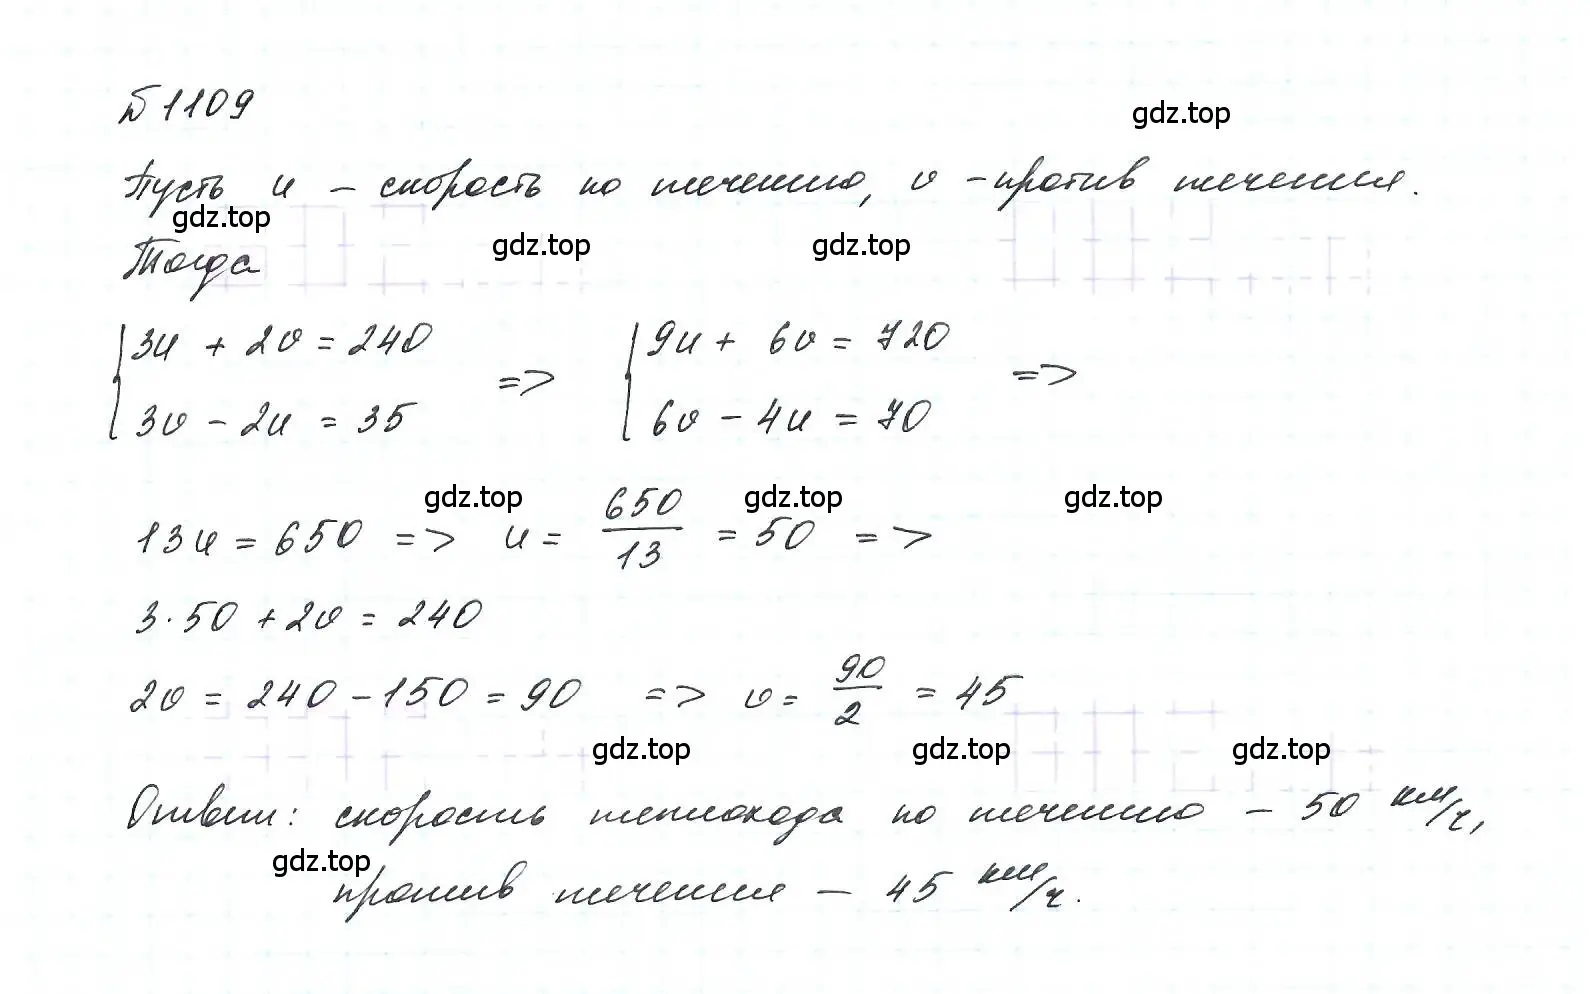 № 1109
gdz.top
Пусть u – скорость по течению, v – против течения.
gdz.top
gdz.top
gdz.top
Тогда
{ 3u + 2v = 240
3v - 2u = 35
=>
{ 9u + 6v = 720
6v - 4u = 70
=>
gdz.top
gdz.top
gdz.top
13u = 650 => u = 650/13 = 50 =>
3·50 + 2v = 240
2v = 240 - 150 = 90 => v = 90/2 = 45
gdz.top
gdz.top
gdz.top
Ответ: скорость теплохода по течению – 50 км/ч,
gdz.top
против течения – 45 км/ч.